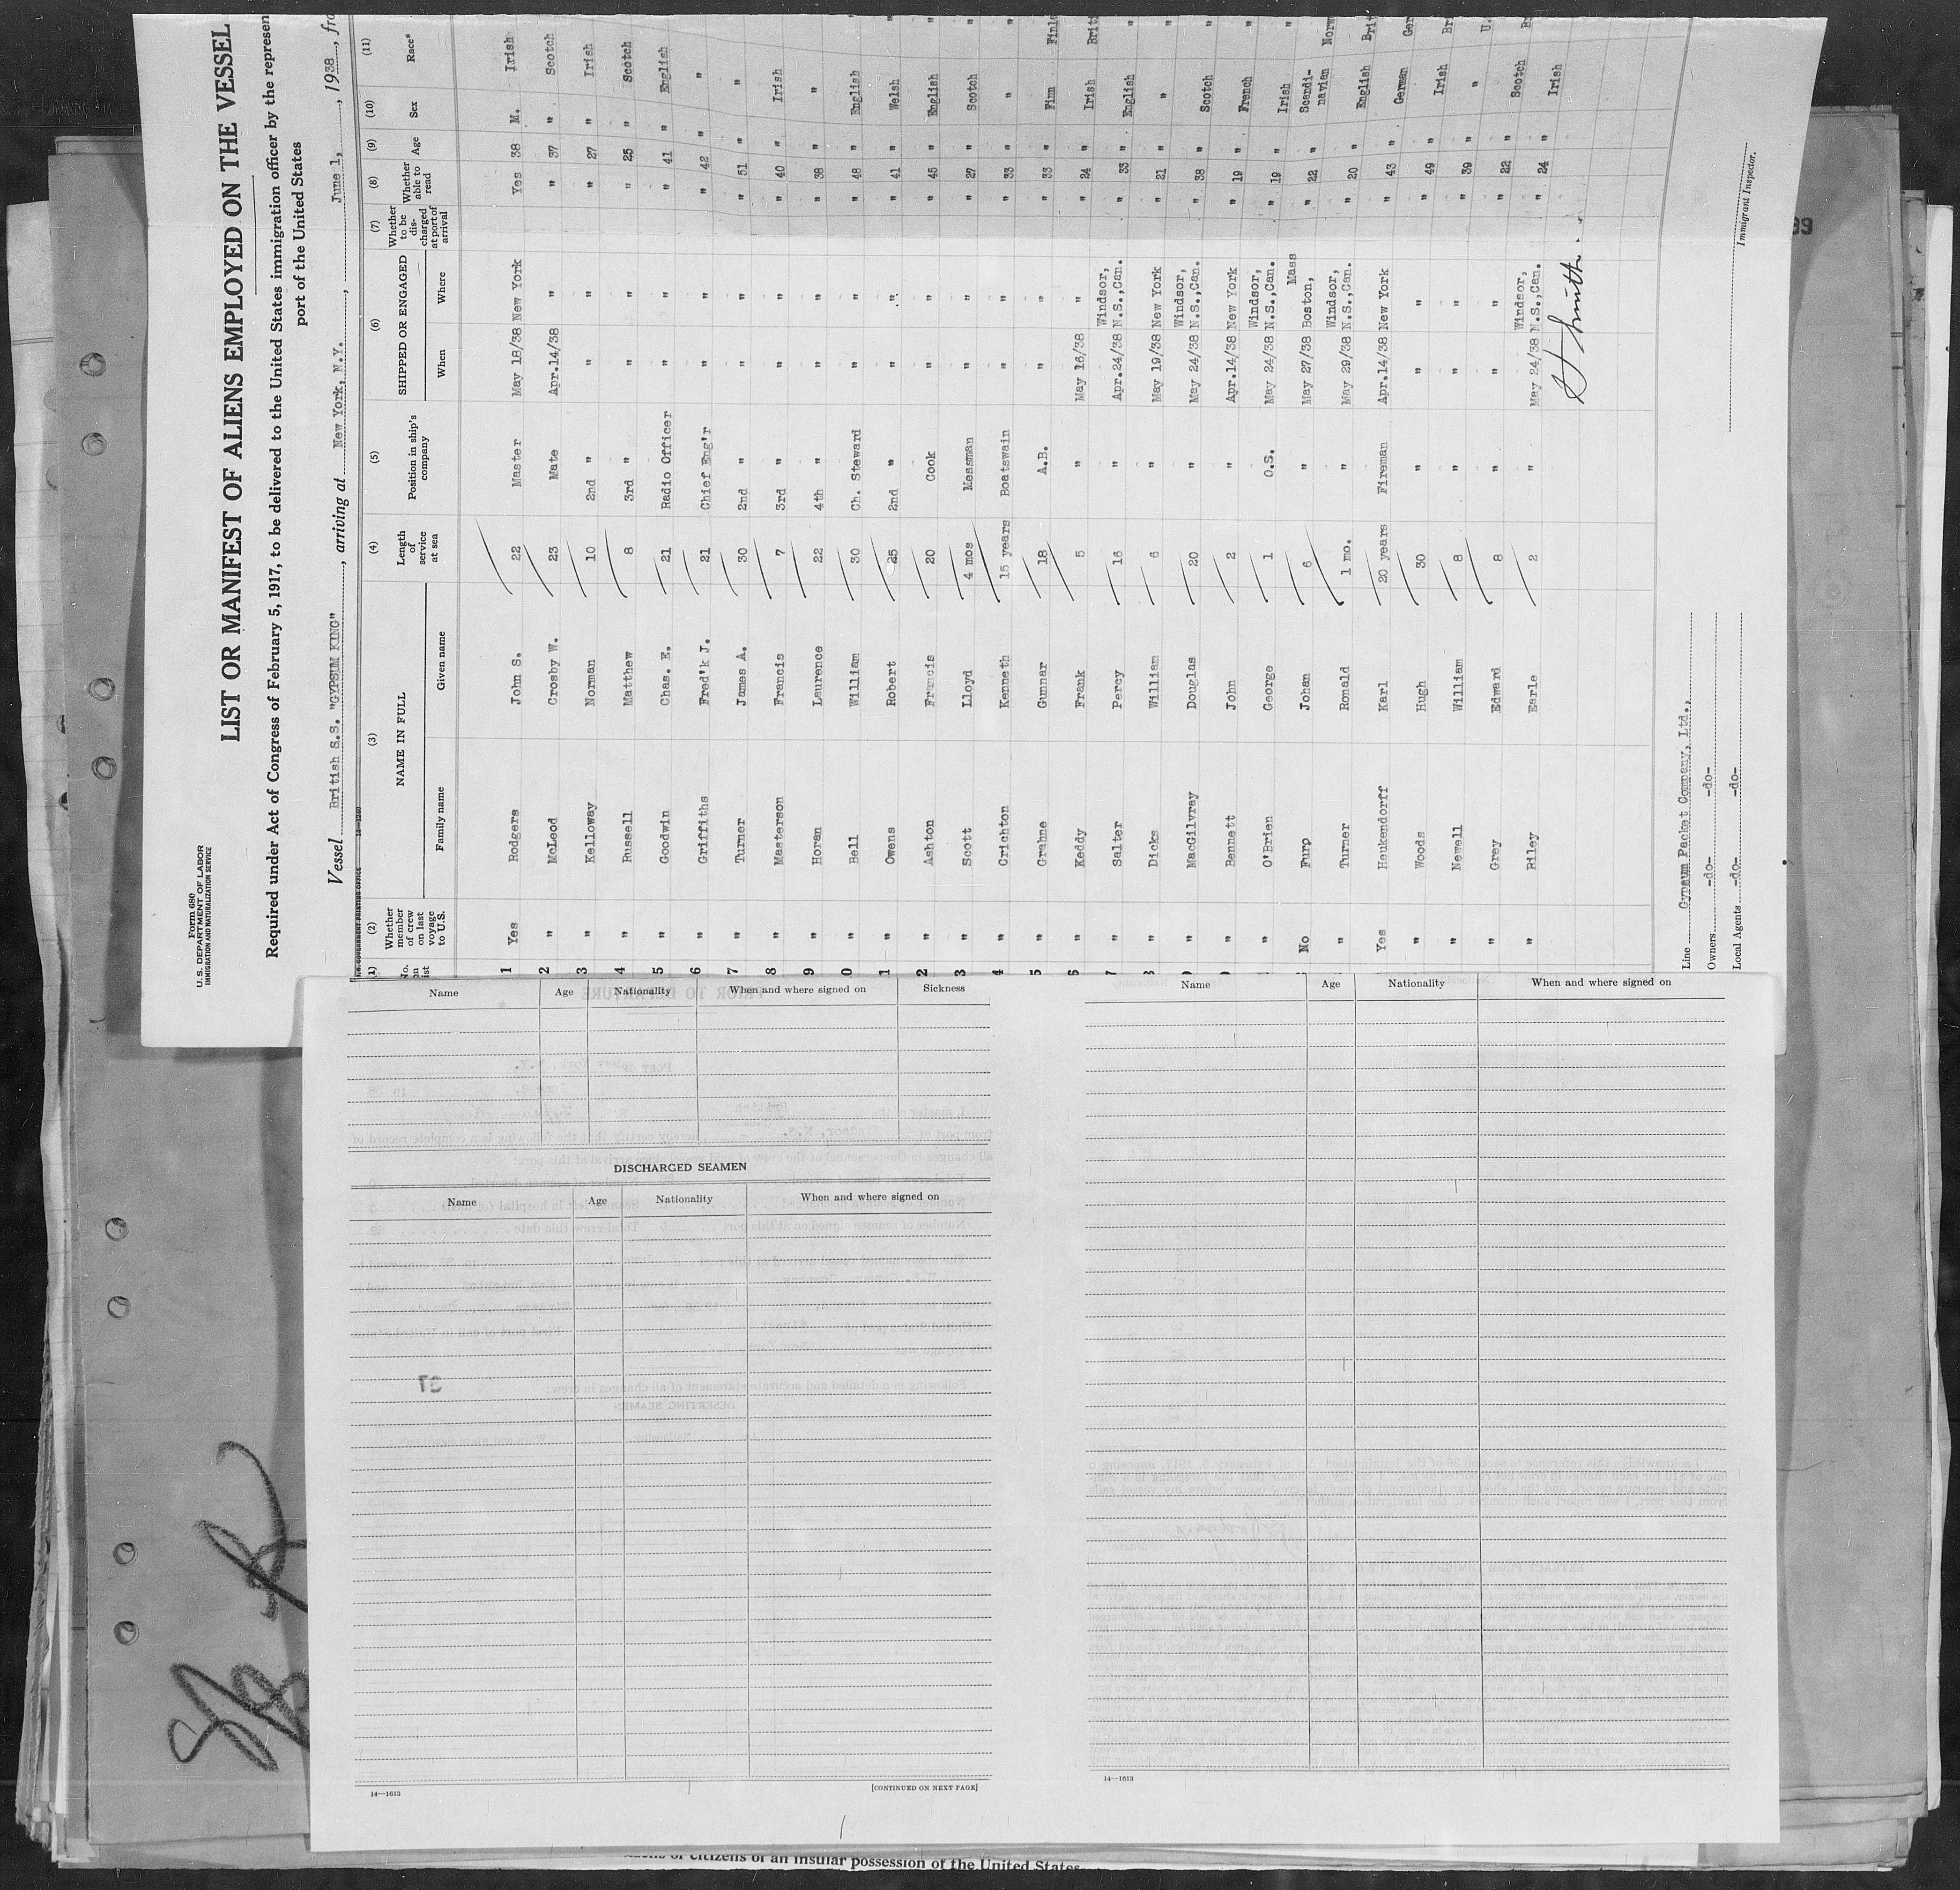 Form 680
U. S. DEPARTMENT OF LABOR
IMMIGRATION AND NATURALIZATION SERVICE
LIST OR MANIFEST OF ALIENS EMPLOYED ON THE VESSEL
Required under Act of Congress of February 5, 1917, to be delivered to the United States immigration officer by the represen
port of the United States
Vessel British S.S. "GYPSUM KING", arriving at New York, N.Y., June 1, 1938, fro
(1) (2) (3) (4) (5) (6) (7) (8) (9) (10) (11)
No. on list Whether member of crew on last voyage to U.S. NAME IN FULL Family name Given name Length of service at sea Position in ship's company SHIPPED OR ENGAGED When Where Whether to be discharged at port of arrival Whether able to read Age Sex Race*
1 Yes Rodgers John S. 22 Master May 18/38 New York Yes 38 M. Irish
2 " McLeod Crosby W. 23 Mate Apr.14/38 " " 37 " Scotch
3 " Kelloway Norman 10 2nd " " " " 27 " Irish
4 " Russell Matthew 8 3rd " " " " 25 " Scotch
5 " Goodwin Chas. E. 21 Radio Officer " " " 41 " English
6 " Griffiths Fred'k J. 21 Chief Eng'r " " " 42 " "
7 " Turner James A. 30 2nd " " " " 51 " "
8 " Masterson Francis 7 3rd " " " " 40 " Irish
9 " Horan Laurence 22 4th " " " " 38 " "
0 " Bell William 30 Ch. Steward " " " 48 " English
1 " Owens Robert 25 2nd " " " " 41 " Welsh
2 " Ashton Francis 20 Cook " " " 45 " English
3 " Scott Lloyd 4 mos Messman " " " 27 " Scotch
4 " Crichton Kenneth 15 years Boatswain " " " 33 " "
5 " Grahne Gunnar 18 A.B. " " " 33 " Finn Finla
6 " Keddy Frank 5 " May 16/38 " " 24 " Irish Briti
7 " Salter Percy 16 " Apr.24/38 Windsor, N.S.,Can. " 33 " English "
8 " Dicks William 6 " May 19/38 New York " 21 " " "
9 " MacGilvray Douglas 20 " May 24/38 Windsor, N.S.,Can. " 38 " Scotch "
" Bennett John 2 " Apr.14/38 New York " 19 " French "
" O'Brien George 1 O.S. May 24/38 Windsor, N.S.,Can. " 19 " Irish "
No Furp Johan 6 " May 27/38 Boston, Mass " 22 " Scandinavian Norw
" Turner Ronald 1 mo. " May 29/38 Windsor, N.S.,Can. " 20 " English Brit
Yes Heukendorff Karl 20 years Fireman Apr.14/38 New York " 43 " German Ger
" Woods Hugh 30 " " " " 49 " Irish Bri
" Newell William 8 " " " " 39 " "
" Grey Edward 8 " " " " 22 " Scotch
" Riley Earle 2 " May 24/38 Windsor, N.S.,Can. " 24 " Irish
Line Gypsum Packet Company, Ltd.,
Owners -do- -do-
Local Agents -do- -do-
Immigrant Inspector.
Name Age Nationality When and where signed on Sickness
Name Age Nationality When and where signed on
DISCHARGED SEAMEN
Name Age Nationality When and where signed on
37
14—1613
[CONTINUED ON NEXT PAGE]
14—1613
of citizens of an insular possession of the United States